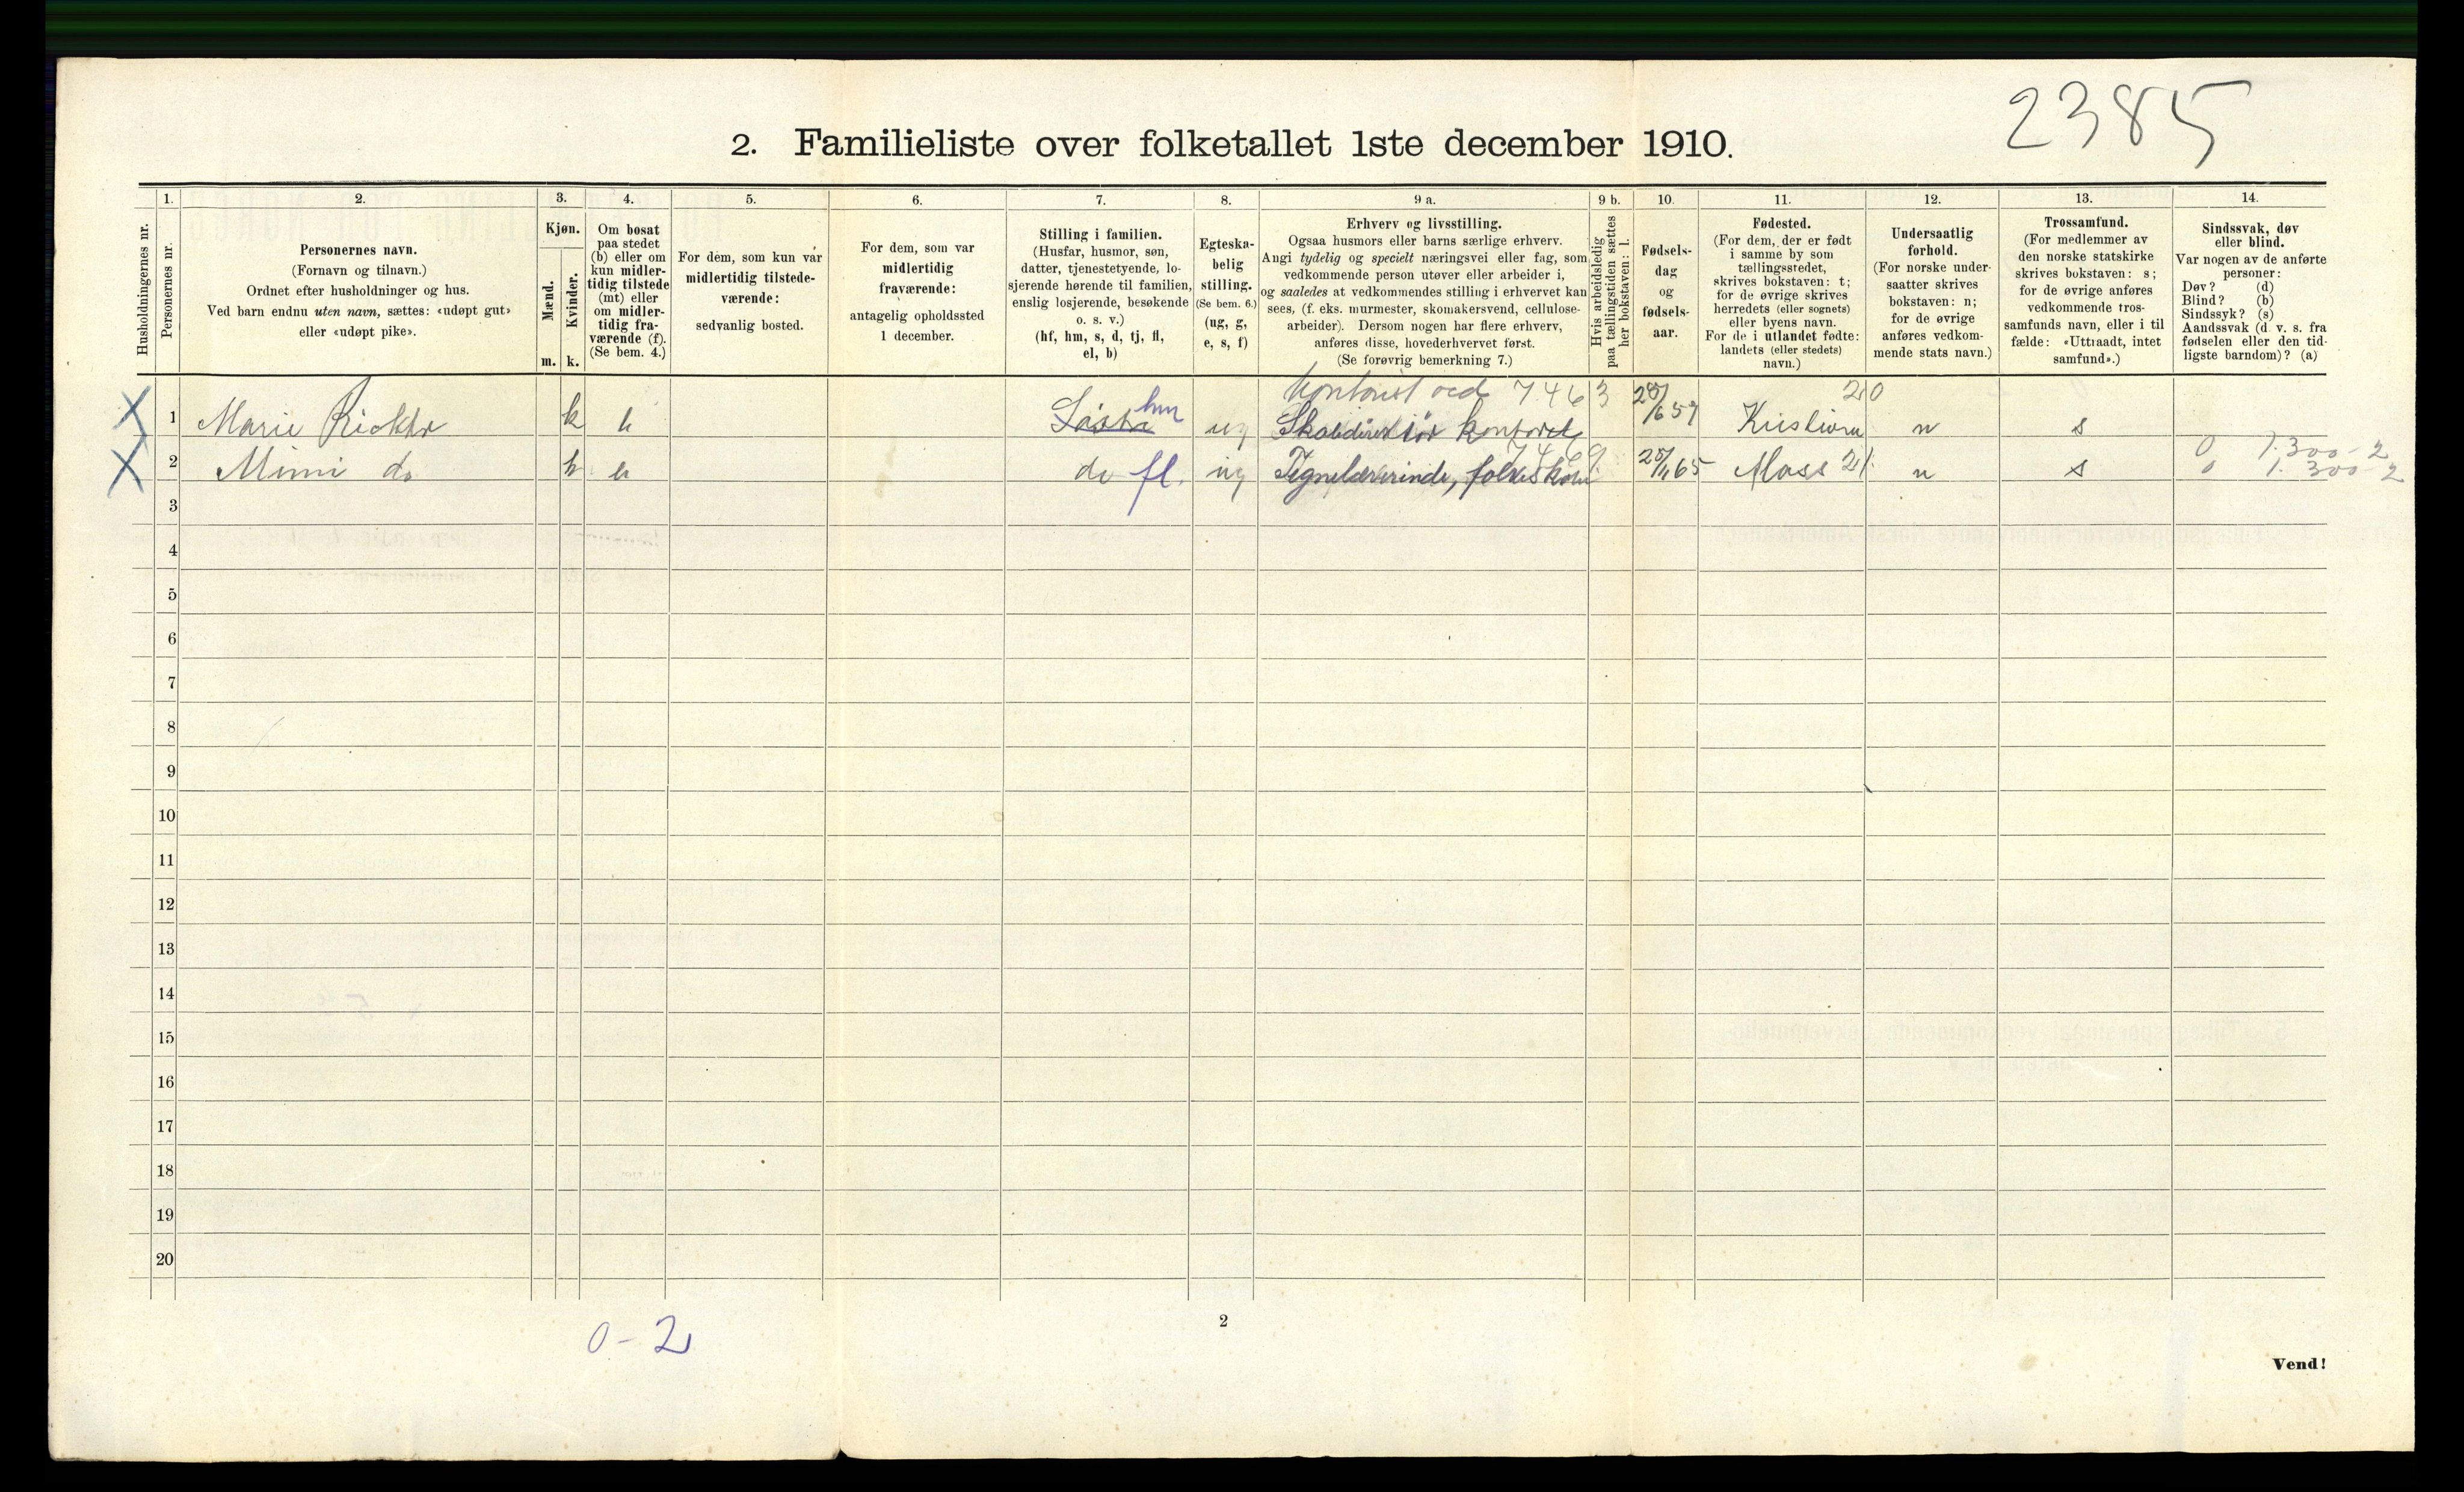 2385
2. Familieliste over folketallet 1ste december 1910.
1. 2. 3. 4. 5. 6. 7. 8. 9 a. 9 b. 10. 11. 12. 13. 14.
Husholdningernes nr.
Personernes nr.
Personernes navn.
(Fornavn og tilnavn.)
Ordnet efter husholdninger og hus.
Ved barn endnu uten navn, sættes: «udøpt gut»
eller «udøpt pike».
Kjøn.
Mænd.
Kvinder.
m. k.
Om bosat
paa stedet
(b) eller om
kun midler-
tidig tilstede
(mt) eller
om midler-
tidig fra-
værende (f).
(Se bem. 4.)
For dem, som kun var
midlertidig tilstede-
værende:
sedvanlig bosted.
For dem, som var
midlertidig
fraværende:
antagelig opholdssted
1 december.
Stilling i familien.
(Husfar, husmor, søn,
datter, tjenestetyende, lo-
sjerende hørende til familien,
enslig losjerende, besøkende
o. s. v.)
(hf, hm, s, d, tj, fl,
el, b)
Egteska-
belig
stilling.
(Se bem. 6.)
(ug, g,
e, s, f)
Erhverv og livsstilling.
Ogsaa husmors eller barns særlige erhverv.
Angi tydelig og specielt næringsvei eller fag, som
vedkommende person utøver eller arbeider i,
og saaledes at vedkommendes stilling i erhvervet kan
sees, (f. eks. murmester, skomakersvend, cellulose-
arbeider). Dersom nogen har flere erhverv,
anføres disse, hovederhvervet først.
(Se forøvrig bemerkning 7.)
Hvis arbeidsledig
paa tællingstiden sættes
her bokstaven: l.
Fødsels-
dag
og
fødsels-
aar.
Fødested.
(For dem, der er født
i samme by som
tællingsstedet,
skrives bokstaven: t;
for de øvrige skrives
herredets (eller sognets)
eller byens navn.
For de i utlandet fødte:
landets (eller stedets)
navn.)
Undersaatlig
forhold.
(For norske under-
saatter skrives
bokstaven: n;
for de øvrige
anføres vedkom-
mende stats navn.)
Trossamfund.
(For medlemmer av
den norske statskirke
skrives bokstaven: s;
for de øvrige anføres
vedkommende tros-
samfunds navn, eller i til
fælde: «Uttraadt, intet
samfund».)
Sindssvak, døv
eller blind.
Var nogen av de anførte
personer:
Døv? (d)
Blind? (b)
Sindssyk? (s)
Aandssvak (d. v. s. fra
fødselen eller den tid-
ligste barndom)? (a)
kontorist ved 7463 20
X 1 Marie Richter k b hm ug kontoret Kristiania n s
0 1.300-2
X 2 Mimi do k b do fl. ug Tegnelærerinde, folkeskolen 65 Moss 21. n s 0 1.300-2
3
4
5
6
7
8
9
10
11
12
13
14
15
16
17
18
19
20
0-2
2
Vend!